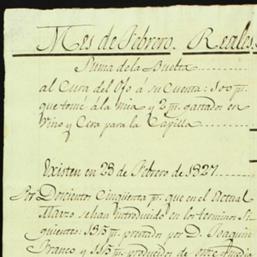 Mes de Febrero. Reales
Suma de la Buelta
al Cura del Oſo a su Cuenta: 100 p.s
que tomé à la mia y 2 p.s gastados en
Vino y Cera para la Capilla
Existen en 23 de Febrero de 1827
Por Docientos Cinquenta p.s que en el Actual
Marzo se han introducido en los terminos si-
guientes: 135 p.s por D. Joaquin
Franco y 115 p.s producidos de